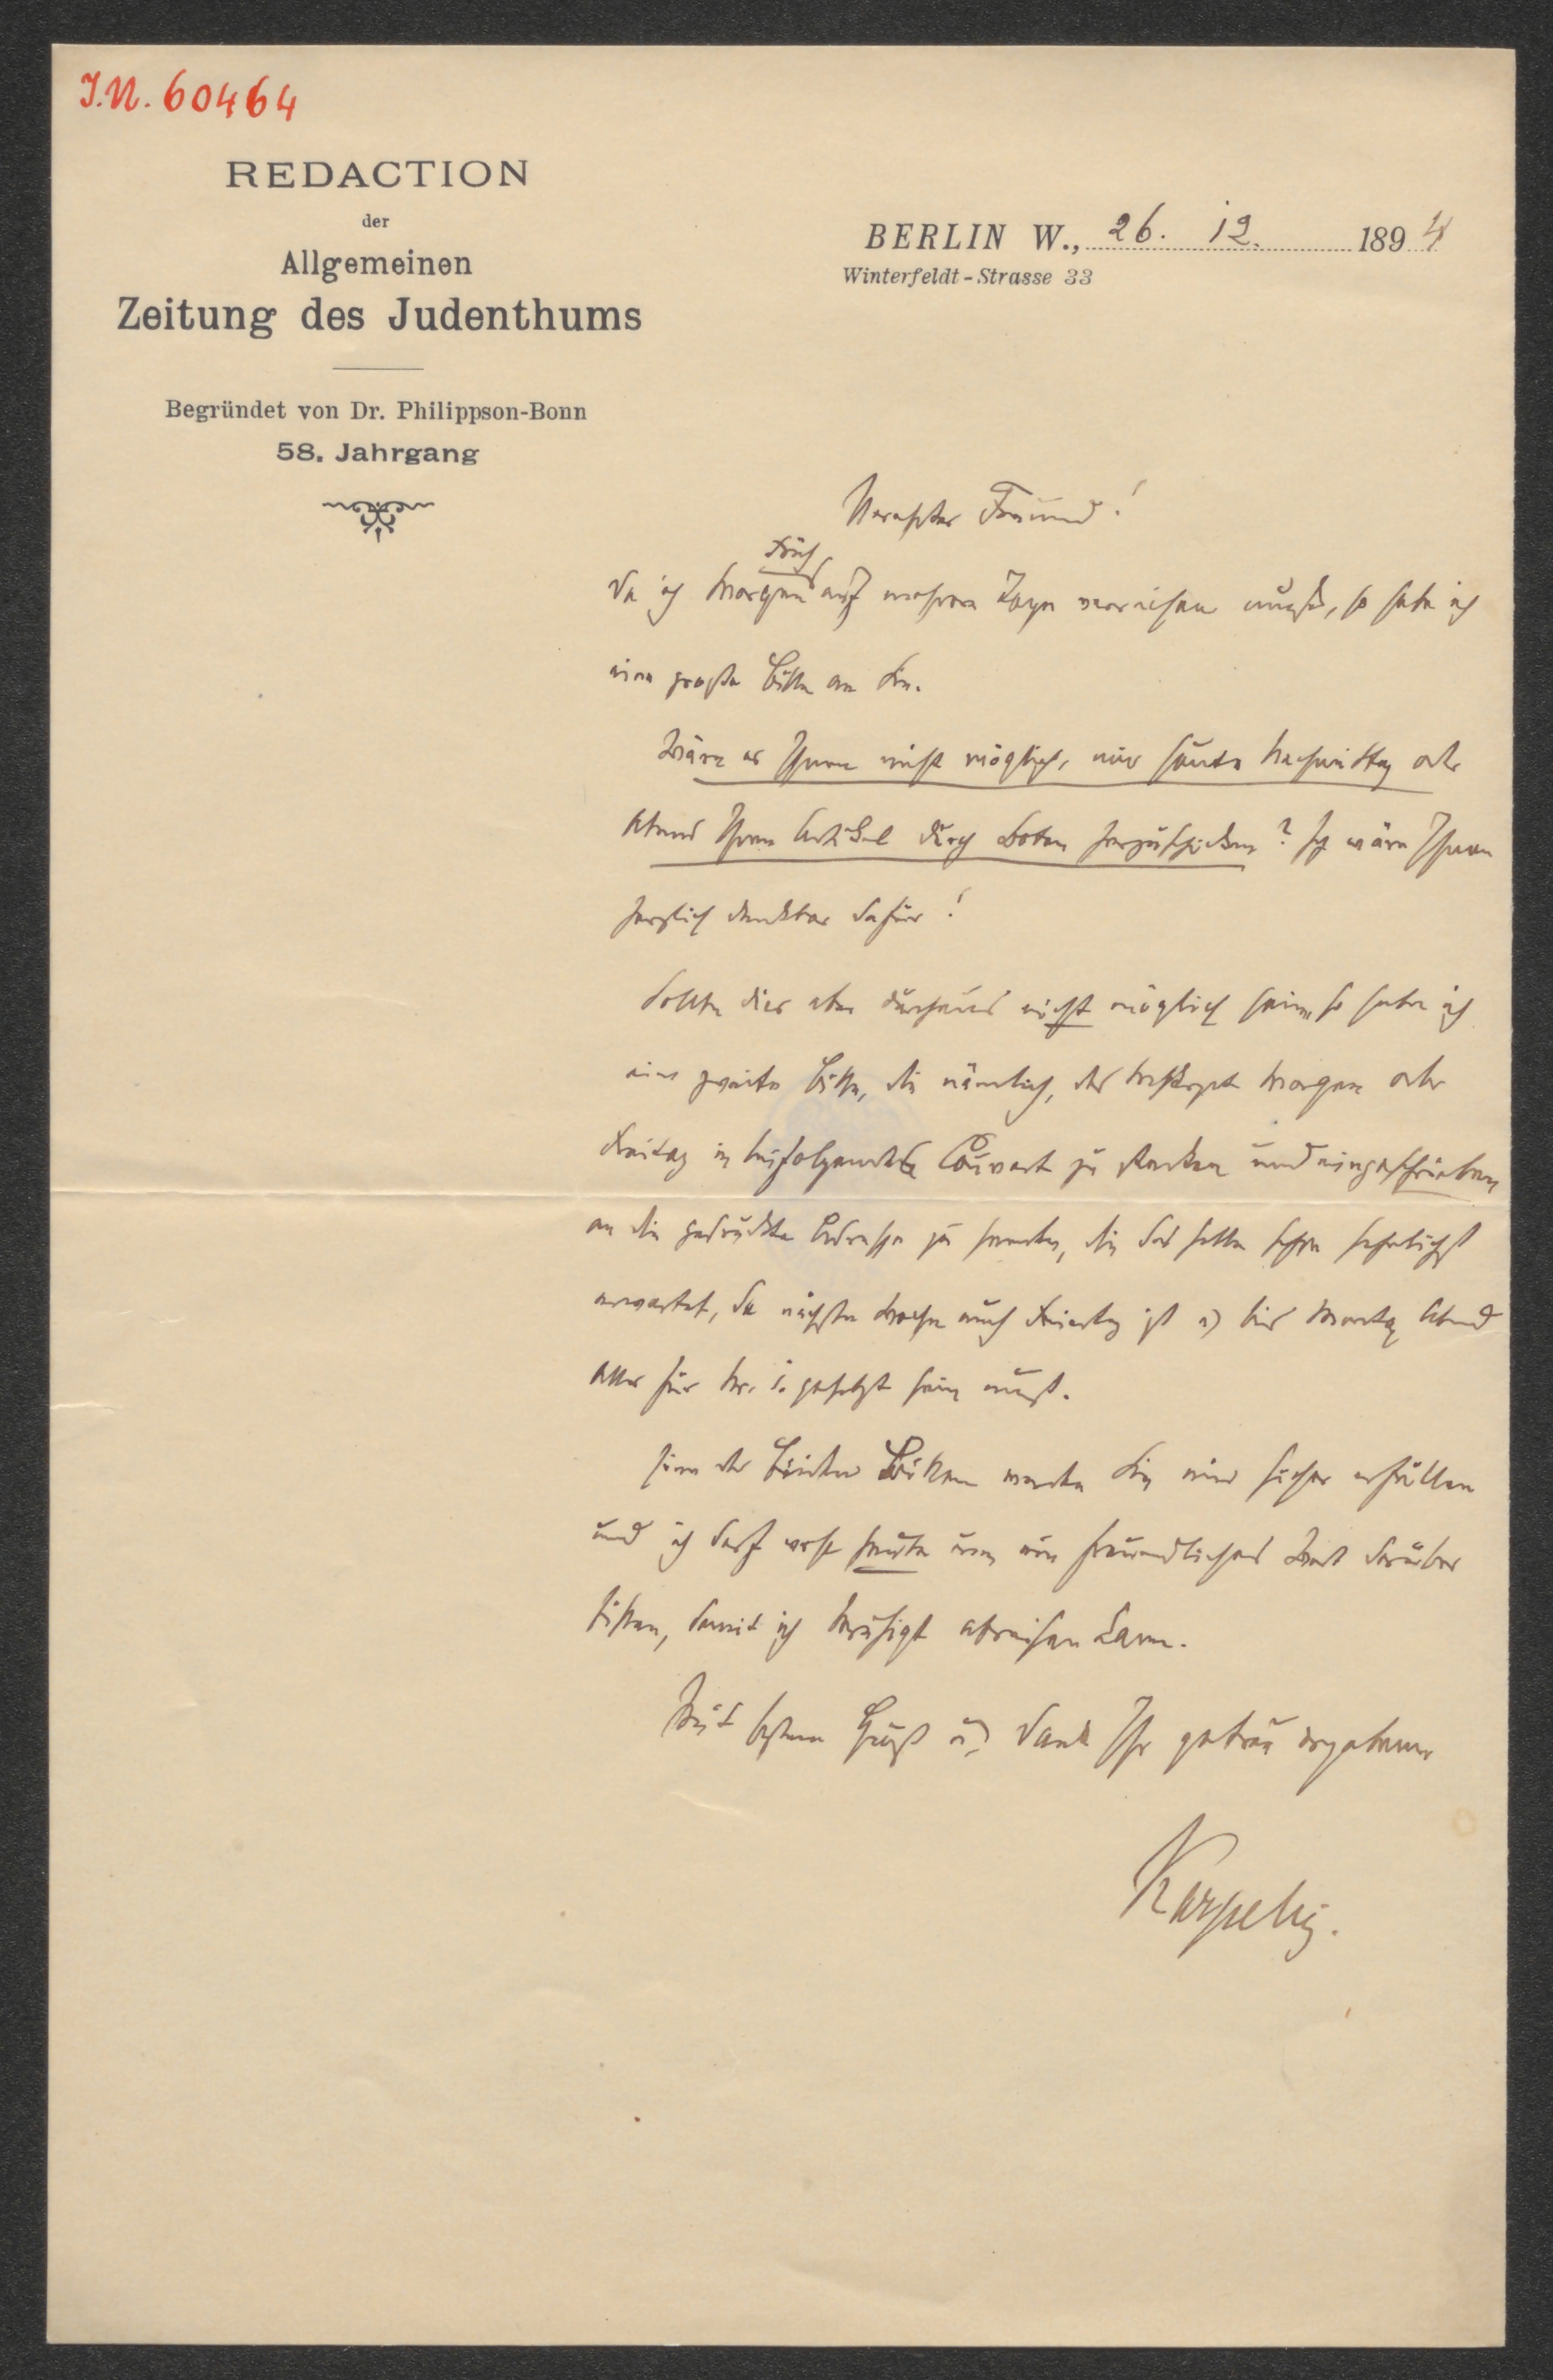 J.N. 60464
REDACTION
der
Allgemeinen
Zeitung des Judenthums
Begründet von Dr. Philippson-Bonn
58. Jahrgang
BERLIN W., 26. 12. 1894
Winterfeldt-Strasse 33
Verehrter Freund!
früh
Da ich morgen auf mehrere Tage verreisen muß, so habe ich
eine große Bitte an Sie.
Wäre es Ihnen nicht möglich, mir heute Nachmittag oder
Abend Ihren Artikel durch Boten herzuschicken? Ich wäre Ihnen
herzlich dankbar dafür!
Sollte dies aber durchaus nicht möglich sein, so habe ich
eine zweite Bitte, die nämlich, das Mskrpt morgen oder
Freitag in beifolgendes Couvert zu stecken und eingeschrieben
an die gedruckte Adresse zu senden, die dasselbe schon sehnlichst
erwartet, da nächste Woche auch Feiertag ist u bis Montag Abend
alles für No. 1. gesetzt sein muß.
Eine der beiden Bitten werden Sie mir sicher erfüllen
und ich darf wohl heute um ein freundliches Wort darüber
bitten, damit ich beruhigt abreisen kann.
Mit bestem Gruß u. Dank Ihr getreu ergebener
Karpeles.